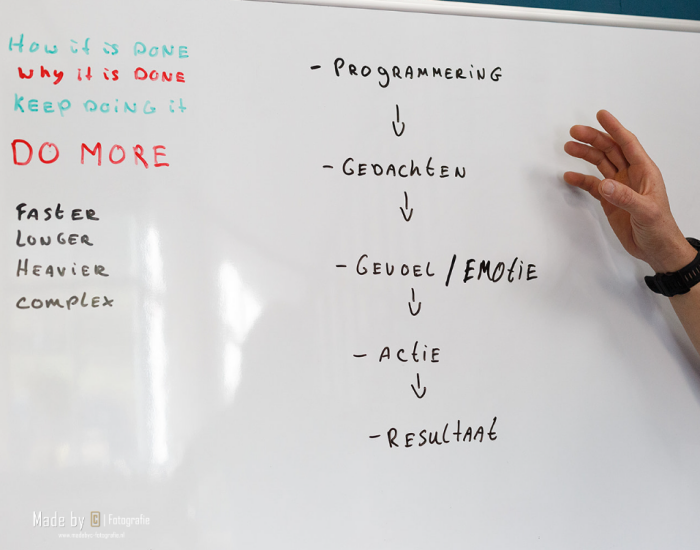 How it is DONE
Why it is DONE
KEEP DOING it
DO MORE
FASTER
LONGER
HEAVIER
COMPLEX
- PROGRAMMERING
- GEDACHTEN
- GEVOEL / EMOTIE
- ACTIE
- RESULTAAT
Made by C | Fotografie